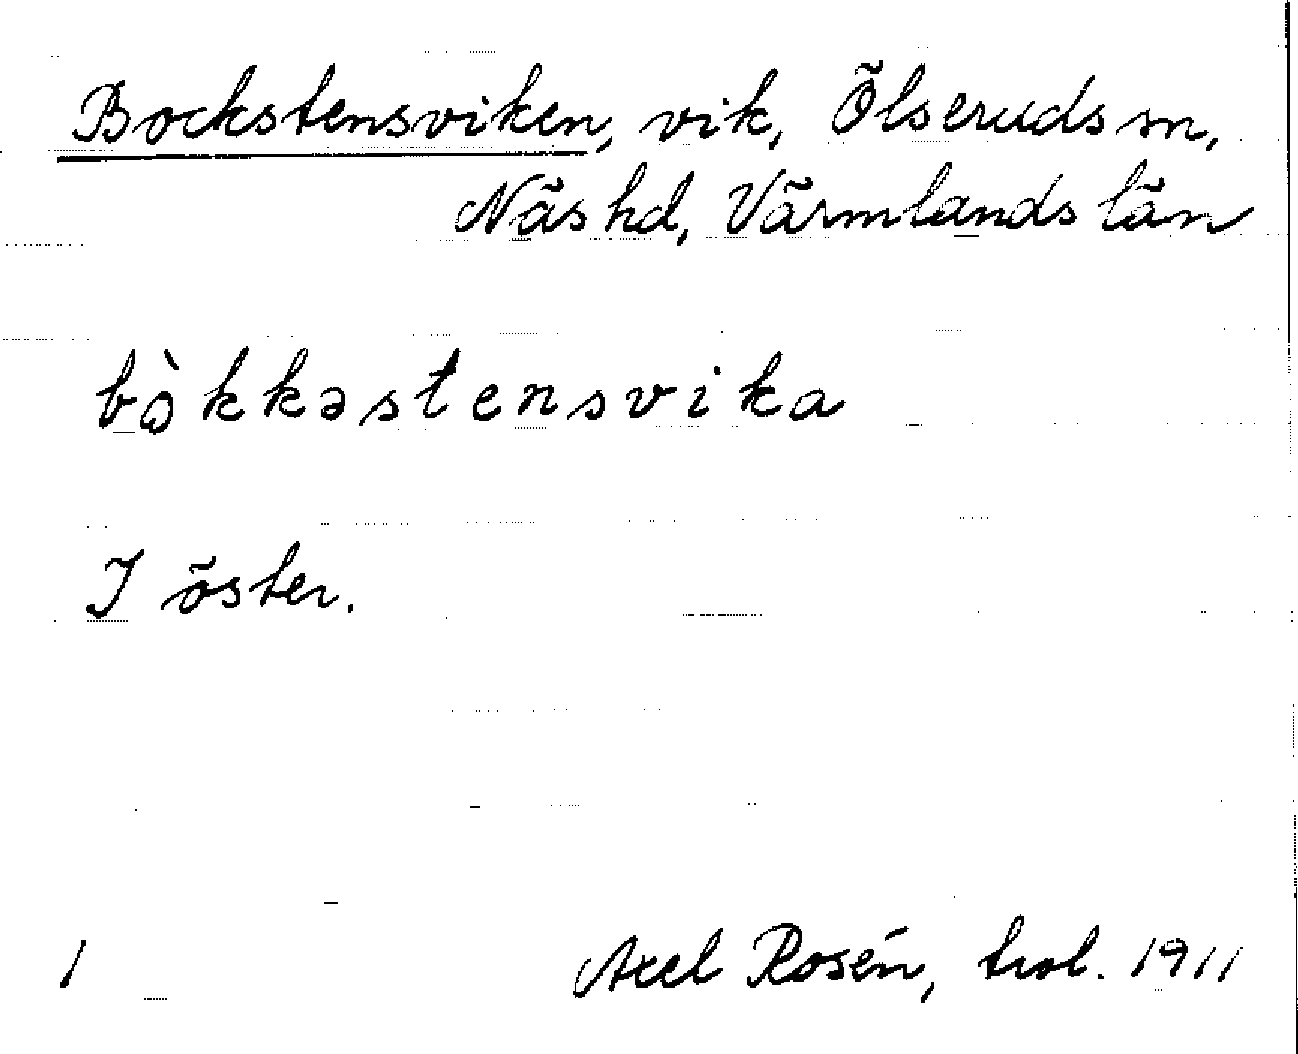 Bockstensviken, vik, Ölseruds sn,
Näs hd, Värmlands län
bǫ̀kkəstensvika
I öster.
1 Axel Rosén, trol. 1911